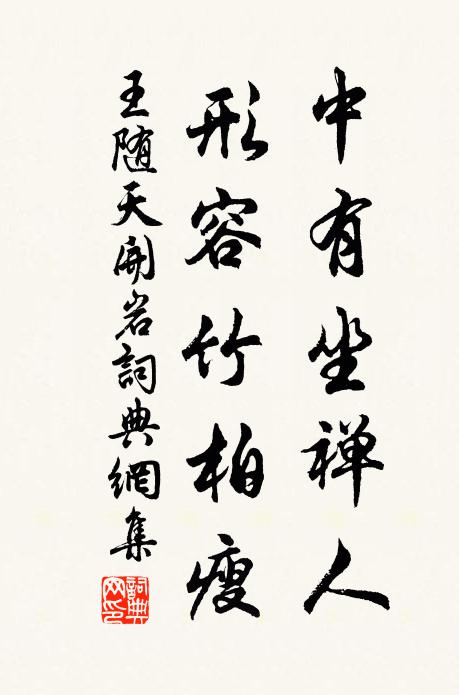 中有坐禅人
形容竹柏瘦
王随天開岩詞典網集
詞典
网印